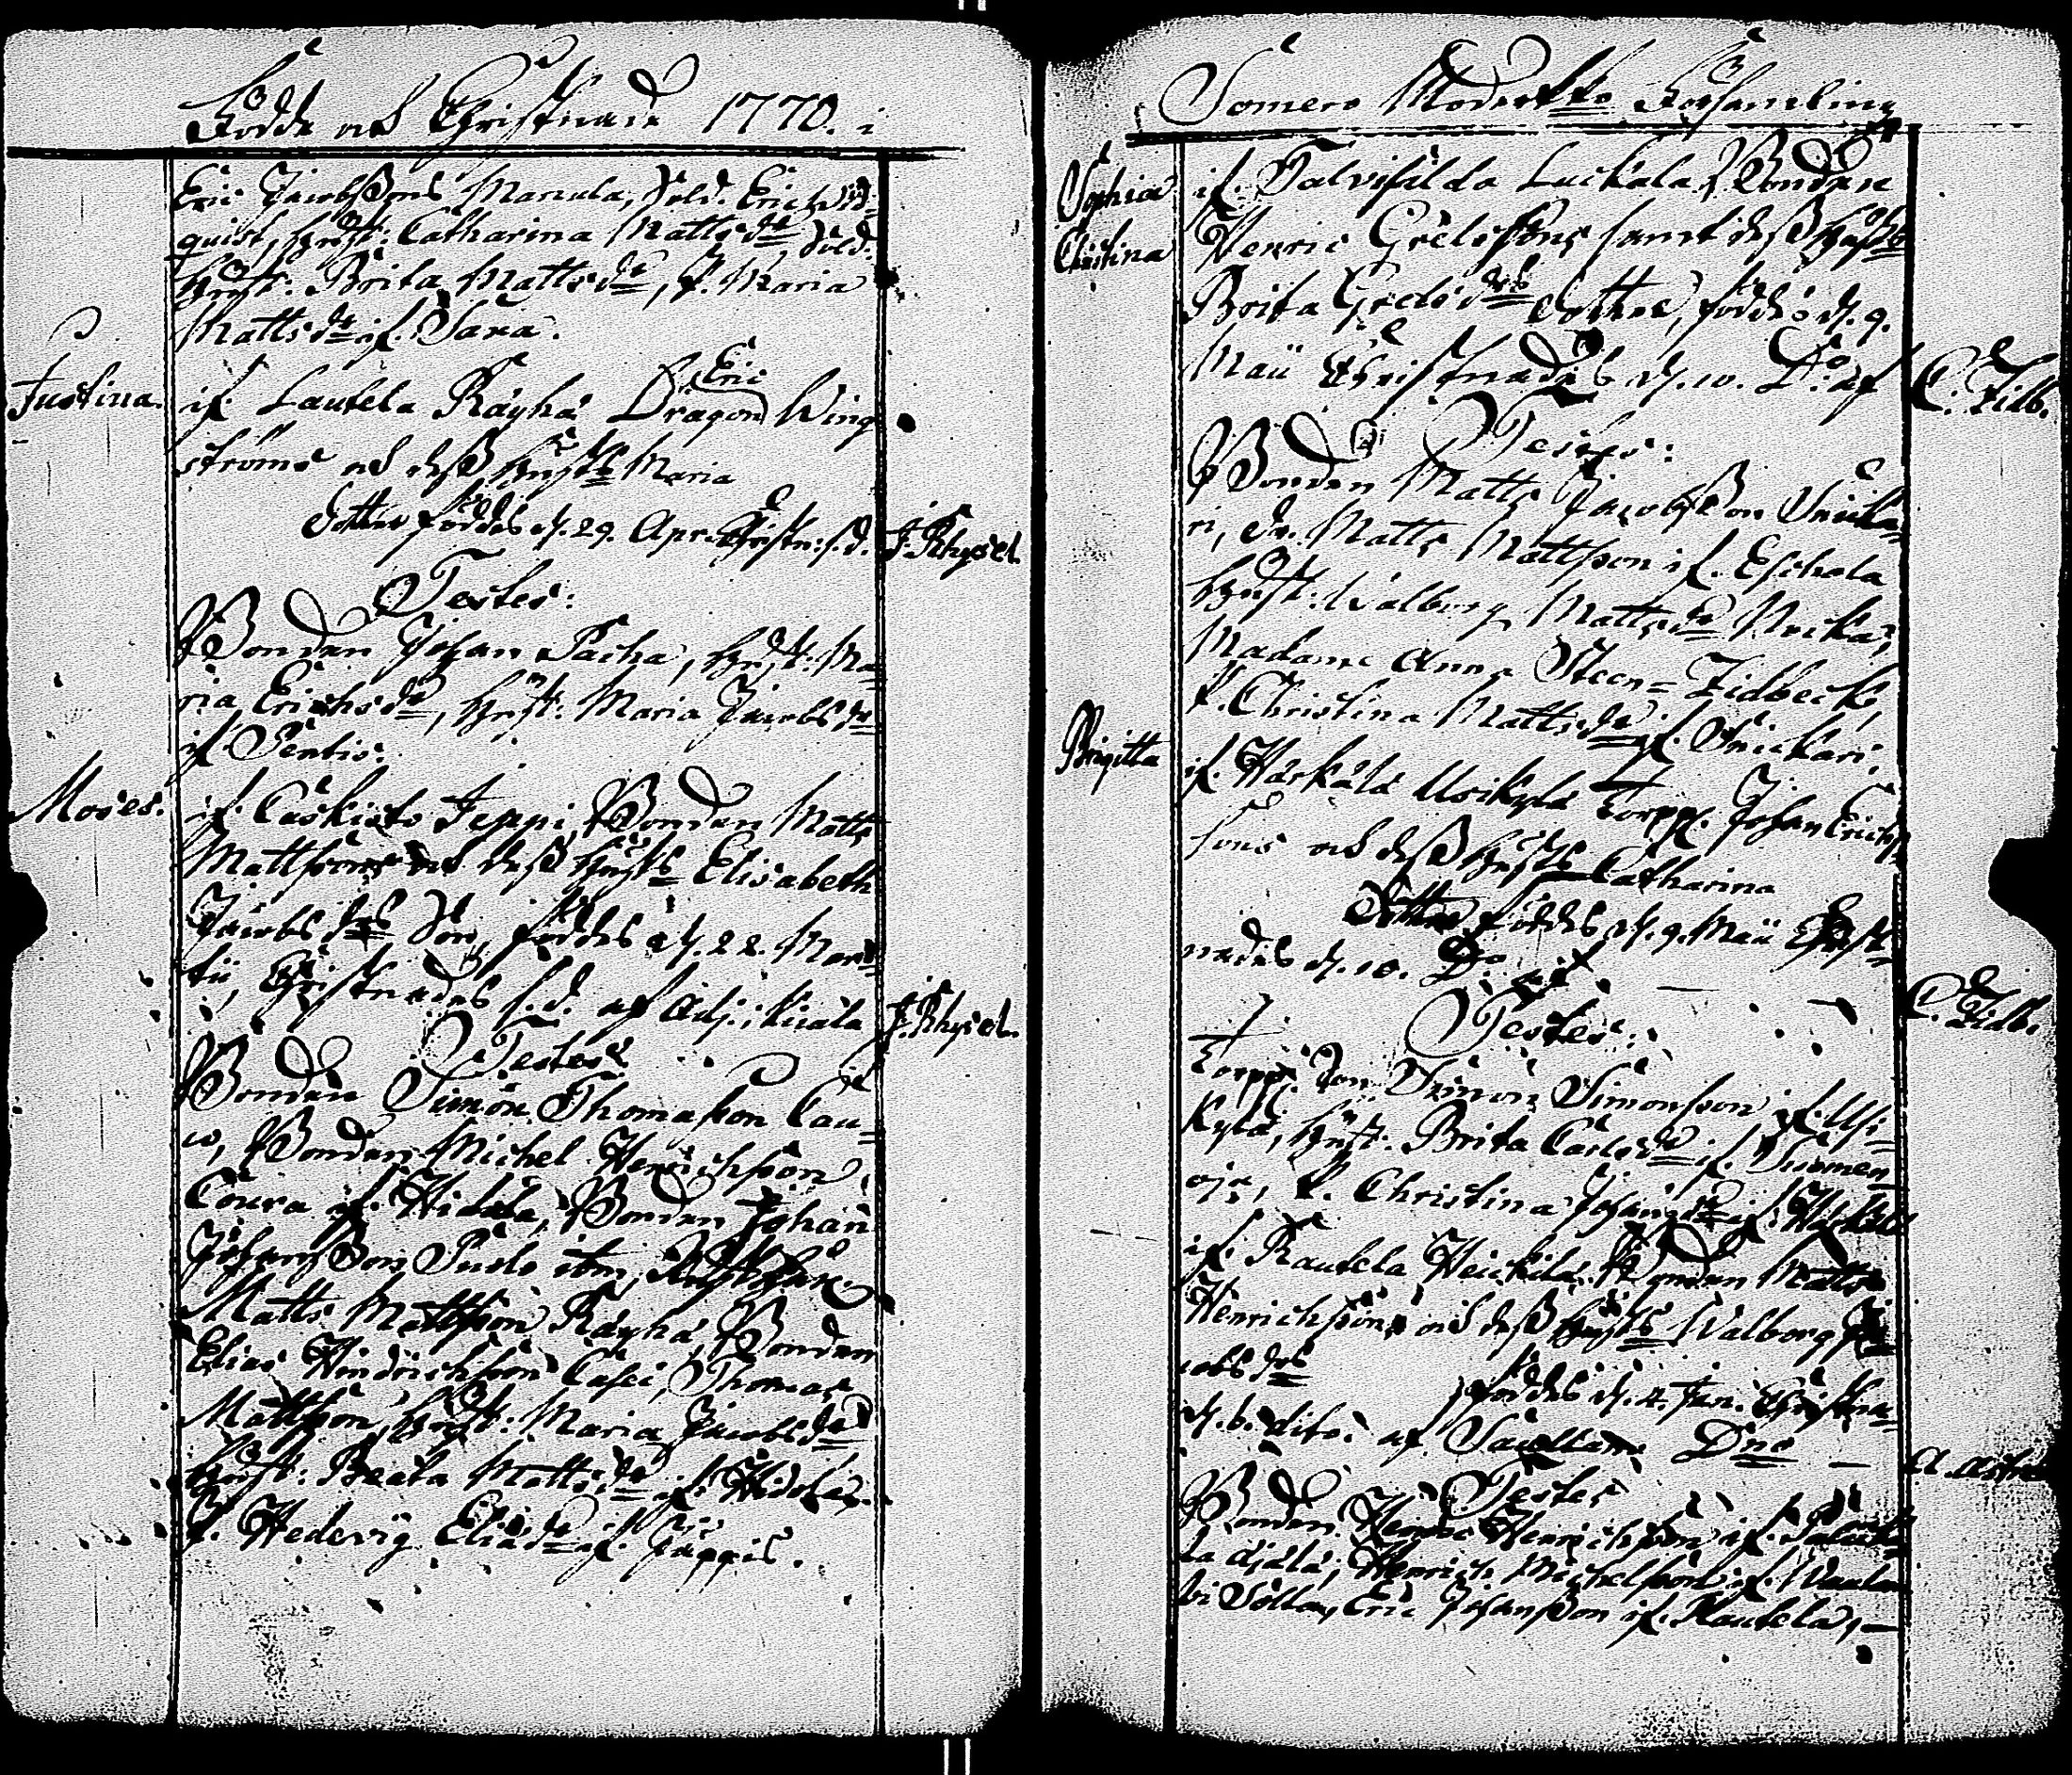 Födde och Christnade 1770. i
Eric Jacobssons Manula, Sold. Eric Wid-
quist, hust: Catharina Mattsdr Sold.
hust: Brita Mattsdr, P. Maria
Mattsdr if. Sara.
Justina. if. Lautela Räyhä Dragon Eric Wing
ströms och dess hustrs Maria
dotter föddes d. 29. Apr. Christn: s. d. J. Rhysel.
Testes:
Bonden Johan Pacha, hust: Ma-
ria Erichsdr, hust: Maria Jacobsdr
if Pentis.
Moses. if. Caskisto Jeppi, Bonden Matts
Mattssons och dess hustrs Elisabeth
Jacobsdrs Son, föddes d. 22. Mar-
tii, Christnades s. d. af Adj. i Kiiala J. Rhysel.
Testes:
Bonden Simon Thomasson Cau-
w, Bonden Michel Henrichsson
Coura if. Hidola, Bonden Johan
Johansson Pusls
Matts Mattsson Räyhä, Bonden
Elias Hindrichsson Casei, Thomas
Mattsson, hust: Maria Jacobsdr
hust: Beata Mattsdr if. Hidola.
P. Hedevig Eliædr if. Jäppis.
Somero Moderkio Församling
Sophia if. Talvisilda Luckala, Bonden
Christina Henric Grelssons samt dess hustrs
Brita Grelsdrs dotter, föddes d. 9.
Maii Christnades d. 10. Do af C. Zidb.
Testes:
Bonden Matts Jacobsson Snicka-
ri, Dr. Matts Mattsson if. Eschola
hust: Walborg Mattsdr Nicka,
Madame Anna Steen-Zidbeck
P. Christina Mattsdr if. Snickari.
Brigitta if. Härkälä Usikylä Torpp. Johan Erichs-
sons och dess hustrs Catharina
dotter föddes d. 9. Maii Christ-
nades d. 10. Do af C. Zidb.
Testes:
Torpp. Son Simon Simonsson if. Usi-
kylä, hust: Brita Carlsdr if. Suomen-
oja, P. Christina Johansdr if. Härkälä
if. Rautela Heickilä Bonden Matts
Henrichssons och dess hustrs Walborg Ja-
cobsdrs föddes d. 4. Jun. Christna-
d. 6. dito. af Sacellan. Dno A.
Testes
Bonden Henric Henrichsson if.
la Ajälä, Henrich Michelsson if.
Sölla, Eric Johansson if. Rautela, —